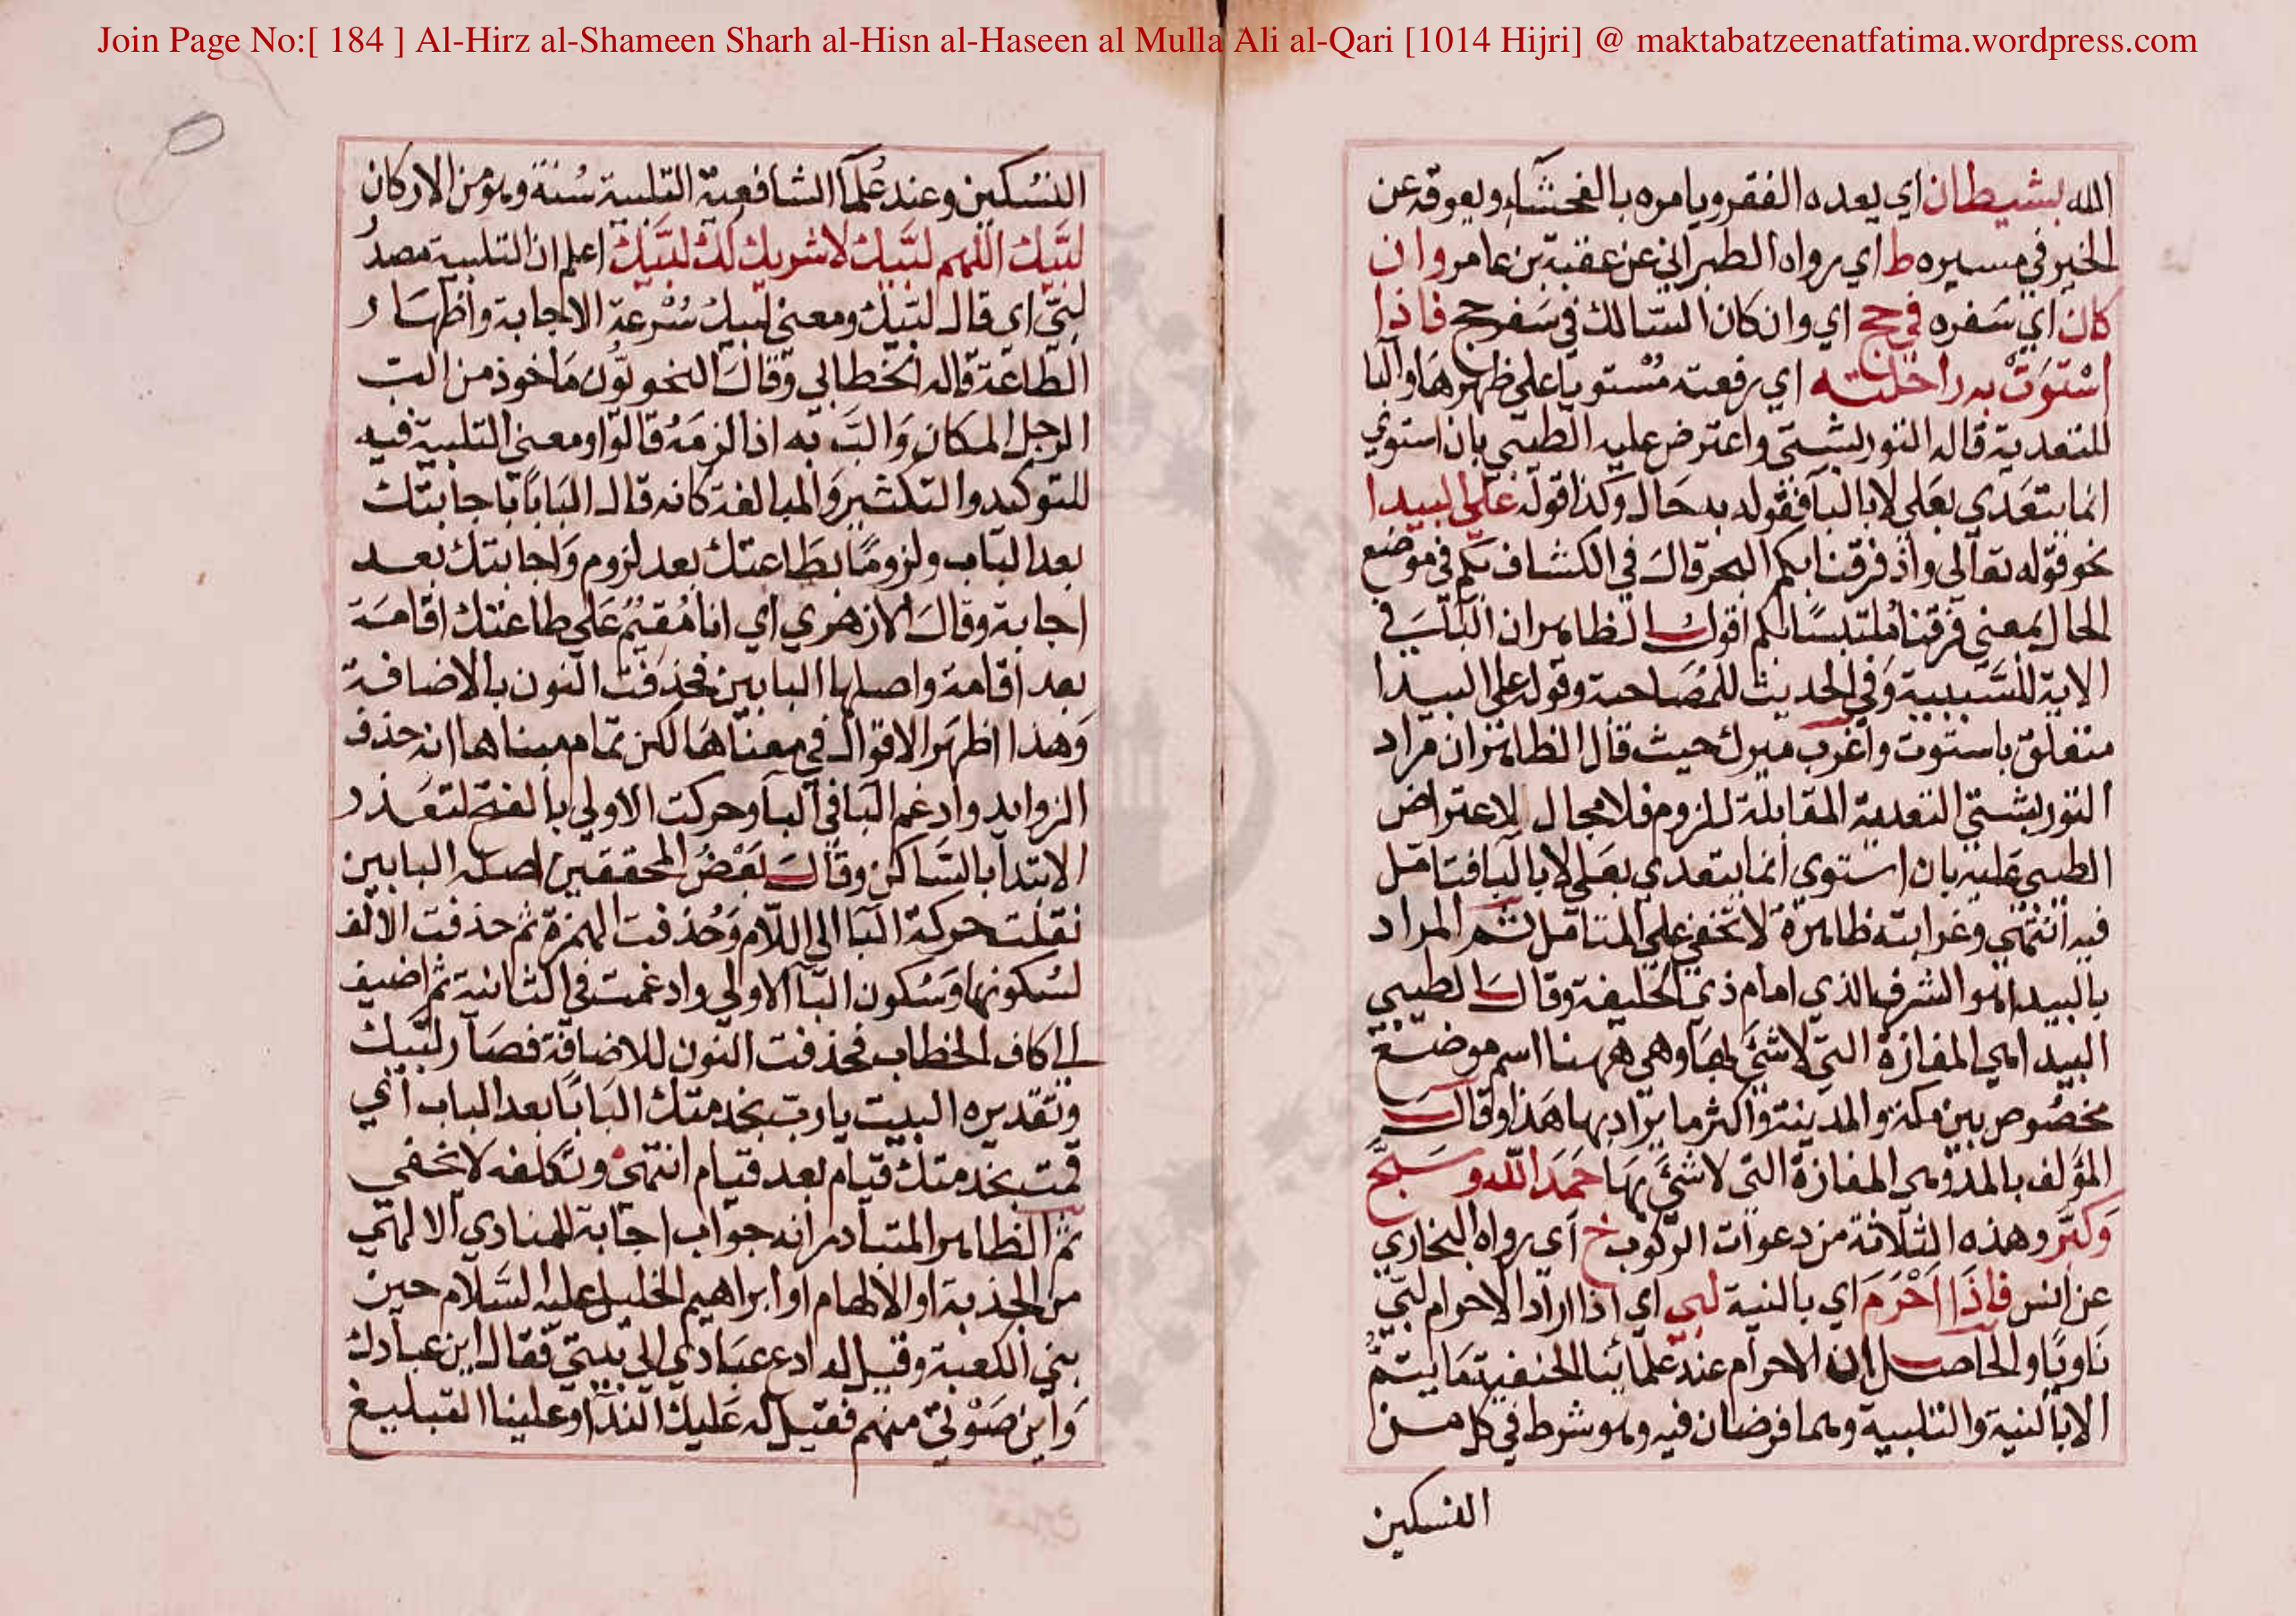 Join Page No:[ 184 ] Al-Hirz al-Shameen Sharh al-Hisn al-Haseen al Mulla Ali al-Qari [1014 Hijri] @ maktabatzeenatfatima.wordpress.com
الله بشيطان اي يعده الفقر ويامره بالفحشآء ويعوقه عن
الخير في مسيره ط اي رواه الطبراني عن عقبة بن عامر وان
كان اي سَفره في حج اي وان كان السّالك في سَفر حج فاذا
اسْتوَتْ به راحلته اي رفعته مُسْتويا على ظهرهَا والبا
للتعدية قاله التوربشتي واعترض عليه الطيبي بان استوي
انما يتعَدي بعَلي لا بالبآ فقوله به حَال وكذا قوله علَي البيدا
نحو قوله تعالى واذ فرقنا بكم البحر قال في الكشاف بكم في موضع
الحال بمعنى فرقنا مُلتبسًا بكم اقول الظاهر ان البآ في
الاية للسَّببية وَفي الحديث للمُصَاحبة وقوله على البيدا
متعلق باستوت واغرب ميرك حيث قال الظاهر ان مراد
التوربشتي التعدية المقابلة للزوم فلا مجال للاعتراض
الطيبي عَليه بان استوي انما يتعدي بعَلي لا بالبَا فتامل
فيه انتهي وغرابته ظاهرة لا تخفي علي المتامل ثم المراد
بالبيدا هو الشرف الذي امام ذي الحليفة وقال الطيبي
البيدا هي المفازة التي لا شئ بهَا وهي ههنا اسم موضع
مخصُوص بين مكة والمدينة واكثر ما يراد بها هَذا وقال
المؤلف بالمد وهي المفازة التي لا شئ بهَا حَمدَ الله وسَبَّحَ
وَكبَّر وهذه الثلاثة من دعوات الركوب خ اي رواه البخاري
عن انس فاذَا اَحْرَمَ اي بالنية لبي اي اذا اراد الاحرام لبّي
نَاويًا والحاصل ان الاحرام عند علمائنا الحنفية مَا يتمُّ
الا بالنية والتلبية وهما فرضان فيه وهو شرط في كل من
النسكين
النسُكين وعند عُلمآ الشافعية التلبية سُنة وهو من الاركان
لبَّيك اللهم لبَّيك لا شريك لك لبَّيك اعلم ان التلبية مصدر
لبّي اي قال لبَّيك ومعني لبيك سُرْعة الاجابة واظهَار
الطاعَة قاله الخطابي وقال النحويّون مَاخوذ من الب
الرجل المكان وَالبَّ به اذا لزمَهُ قالوا ومعني التلبية فيه
للتوكيد والتكثير وَالمبالغة كانه قال البَابًا باجابتك
بعد الباب ولزومًا بطَاعتك بعد لزوم وَاجابتك بعد
اجابة وقال الازهري اي انا مُقيمٌ عَلي طاعتك اقامَة
بعد اقامة واصلها البابين فحذفت النون بالاضافة
وَهذا اظهَر الاقوال في معناهَا لكن تمام مبناها انه حذف
الزوايد وادغم البَا في البآ وحركت الاولي بالفتح لتعَذر
الابتدا بالسَّاكن وقال بَعْضُ المحققين اصله البابين
نقلت حركة البآ الي اللام وَحُذفت الهمزة ثم حذفت الالف
لسُكونها وَسُكون البآ الاولي وادغمت في الثانية ثم اضيف
الي كاف الخطاب فحذفت النون للاضافة فصَار لبَّيك
وتقديره البيت يارب بخدمتك البَابًا بعد الباب اي
قمت بخدمتك قيام بعد قيام انتهي وتكلفه لا يخفي
ثم الظاهر المتبادر انه جواب اجَابة للمنادي الالهي
من الجذبة او الالهام او ابراهيم الخليل عليه السَّلام حين
بني الكعبة وقيل له ادع عبَادي الي بيتي فقال اين عبادك
وَاين صَوْتي منهم فقيل له عَليك الندآ وعلينا التبليغ